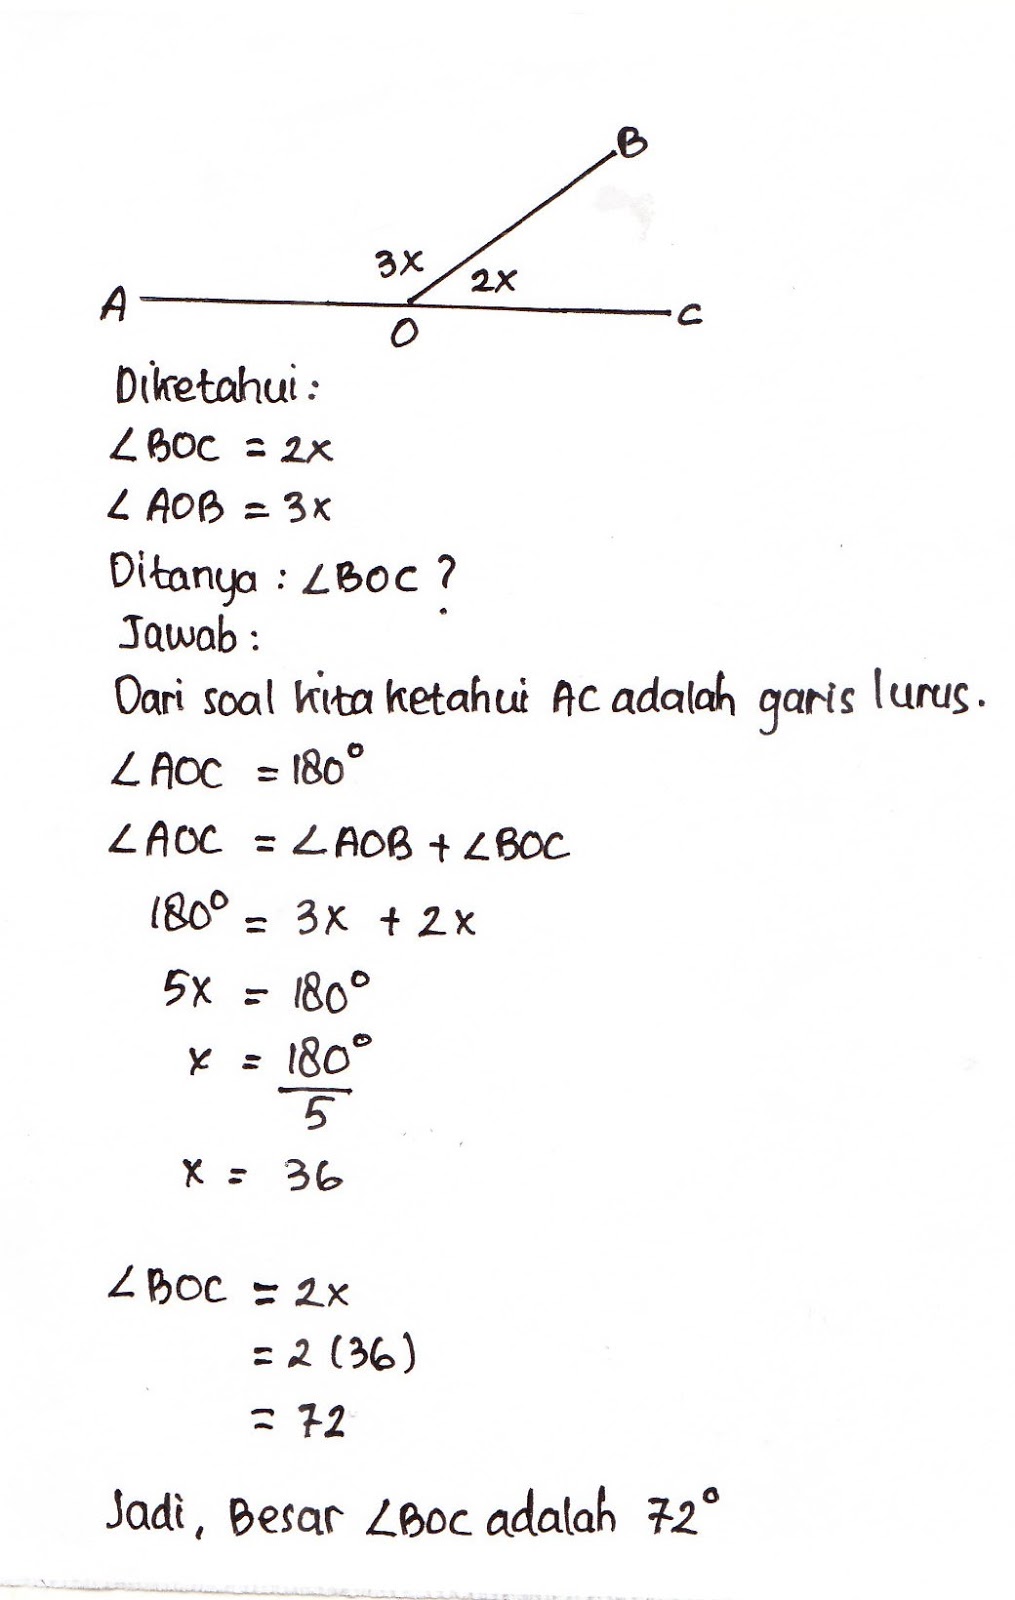 B
3x
2x
A
O
C
Diketahui:
∠BOC = 2x
∠AOB = 3x
Ditanya : ∠BOC ?
Jawab :
Dari soal kita ketahui AC adalah garis lurus.
∠AOC = 180°
∠AOC = ∠AOB + ∠BOC
180° = 3x + 2x
5x = 180°
x = 180°
5
x = 36
∠BOC = 2x
= 2 (36)
= 72
Jadi, Besar ∠BOC adalah 72°